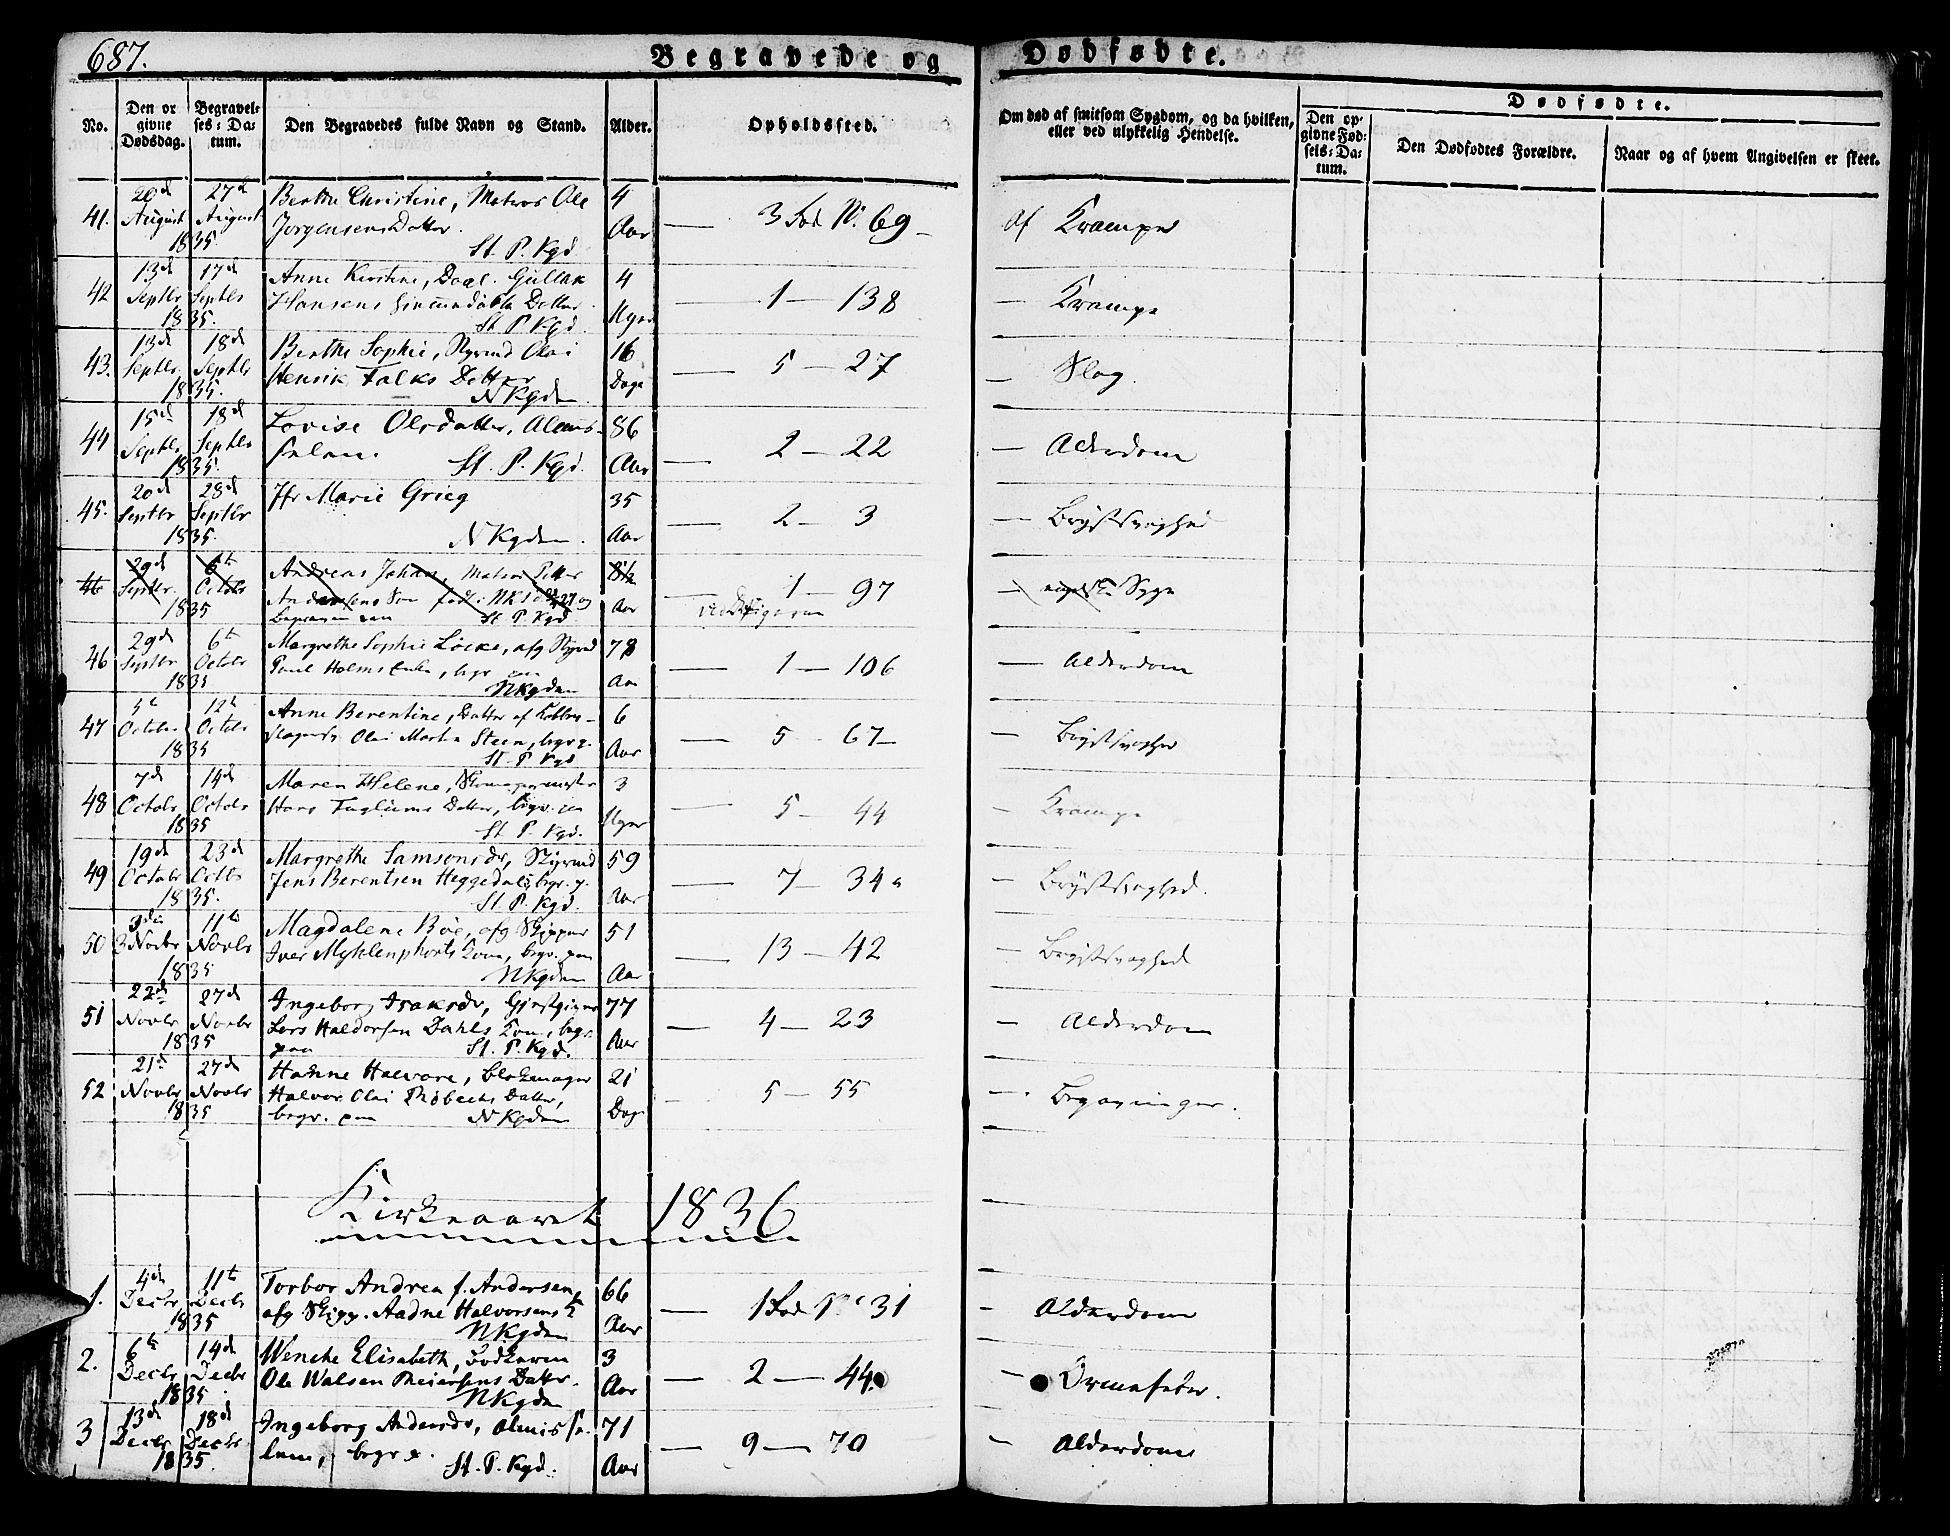 687.
Begravede og Dødfødte.
No.
Den opgivne Dødsdag.
Begravelses-Datum.
Den Begravedes fulde Navn og Stand.
Alder.
Opholdssted.
Om død af smitsom Sygdom, og da hvilken, eller ved ulykkelig Hendelse.
Dødfødte.
Den opgivne Fødsels-Datum.
Den Dødfødtes Forældre.
Naar og af hvem Angivelsen er skeet.
41. 20d August 27d August 1835 Berthe Christine, Matros Ole
Jørgensens Datter.
St. P. Kgd
4 Aar — 3 Rod No 69 — af Krampe
42 13d Septbr 17d Septbr 1835. Anne Kirstine, Gullak
Hansens Datter.
St P Kgd
4 — 1 — 138 — Krampe
43. 13d Septbr 18d Septbr 1835. Berthe Sophie, Styrmd Olai
Henrik Falks Datter
N Kgden
16 Dage — 5 — 27 — Slag.
44 15d Septbr 18d Septbr 1835. Lovise Olsdatter, Almis-
selem.
St. P. Kgd.
86 Aar — 2 — 22 — Alderdom
45. 20d Septbr 28d Septbr 1835. Jfr Marie Grieg
N Kgden.
35 Aar — 2 — 3 — Brystsvaghed
46 29d Septbr. 6te Octobr 1835 Andreas Johan, Matros Petter
Andersens Søn
St P. Kgd
8½ Aar — 1 — 97 — Syge
46 29d Septbr 6te Octobr 1835 Margrethe Sophie Löcke, afg Styrmd
Poul Holms Enke, begr. paa
NKgden
78 Aar — 1 — 106 — Alderdom
47 5te Octobr 12te Octobr 1835 Anne Berentine, Datter af Kobber-
slager Olai Martin Steen, begr. p.
St. P Kgd
6 Aar — 5 — 67 — Brystsvaghed
48 7d Octobr 14d Octobr 1835 Maren Helene,
Hans Datter, begr. paa
St P. Kgd.
3 — 5 — 44 — Krampe
49 19d Octobr 23d Octbr 1835. Margrethe Samsonsdr, Styrmd
Jens Berentsen Heggedals, begr. p.
St. P. Kgd.
59 Aar — 7 — 34a — Brystsvaghed.
50 3die Novbr 11te Novbr 1835 Magdalene Böe, afg Skipper
Iver Myklenphorts Kone, begr. paa
NKgden
51 Aar — 13 — 42 — Brystsvaghed
51 22d Novbr 27d Novbr 1835 Ingeborg Isaksdr, Gjestgiver
Lars Haldorsen Dahls Kone, begr.
paa St. P. Kgd.
77 Aar — 4 — 23 — Alderdom
52 21d Novbr 27d Novbr 1835 Hanne Halvare, Blokmager
Halvor Olai Datter,
begr. paa N Kgden
21 Dage — 5 — 55
Kirkeaaret 1836
1. 4d Decbr 11te Decbr 1835 Torbor Andrea f. Andersen,
afg Skipp. Aadne Halvorsens
NKgden
66 Aar — 1 Rod No 31 — Alderdom
2. 6te Decbr 14d Decbr 1835. Wenche Elisabeth,
Ole Walsen Datter.
NKgden
3 Aar — 2 — 44. — Ormefeber.
3 13d Decbr 18d Decbr 1835. Ingeborg Andersdr, Almisse-
lem, begr p.
St. P. Kgd.
71 Aar — 9 — 70 — Alderdom